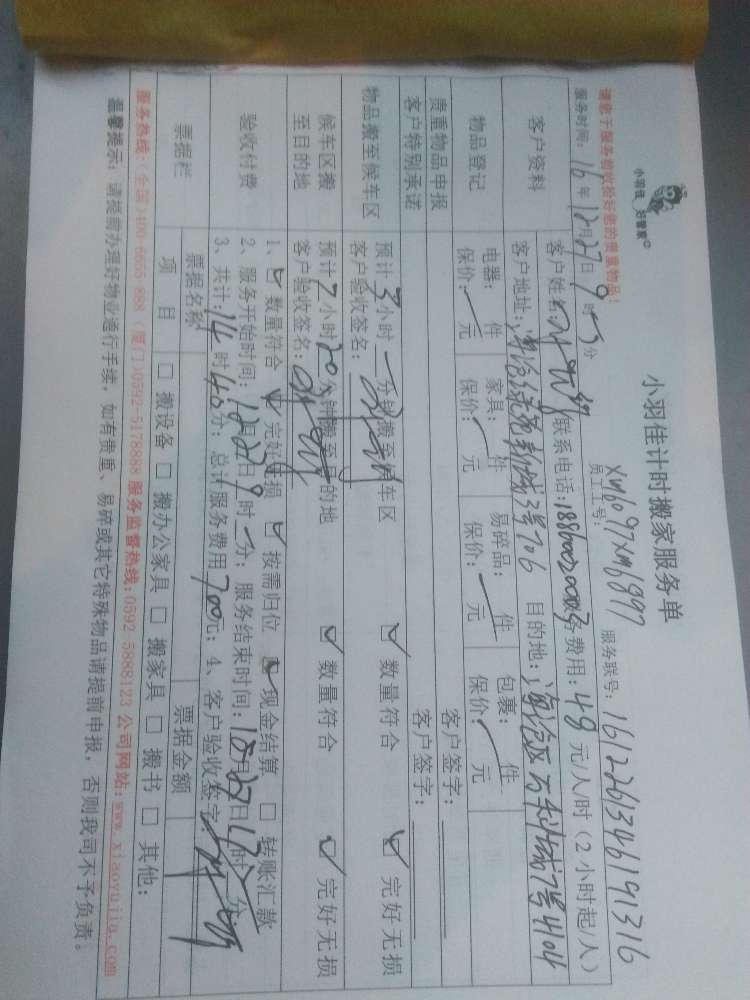 小羽佳 好管家
小羽佳计时搬家服务单
员工工号: xm6097xm6897 服务联号: 1612261346191316
请您于服务前收拾好您的贵重物品!
服务时间: 16年12月27日9时 分
客户资料
客户姓名: 联系电话: 服务费用:48元/人/时(2小时起/人)
客户地址: 目的地:
物品登记
电器: 件 家具: 件 易碎品: 件 包裹: 件
保价:一元 保价:一元 保价:一元 保价:一元
贵重物品申报 客户签字:
客户特别承诺 客户签字:
物品搬至候车区
预计3小时一分钟搬至候车区 数量符合 完好无损
客户验收签名:
候车区搬至目的地
预计2小时20分钟搬至目的地 数量符合 完好无损
客户验收签名:
验收付费
1、数量符合 完好无损 按需归位 现金结算 转账汇款
2、服务开始时间:12月27日9时一分; 服务结束时间:12月27日 时 分
3、共计:14时40分; 总计服务费用700元; 4、客户验收签字:
票据栏
票据名称 票据金额
项目 搬设备 搬办公家具 搬家具 搬书 其他:
服务热线:(全国)400-6655-888 (厦门)0592-5178888 服务监督热线:0592-5888123 公司网站:www.xiaoyujia.com
温馨提示: 请提前办理好物业通行手续, 如有贵重、易碎或其它特殊物品请提前申报, 否则我司不予负责。